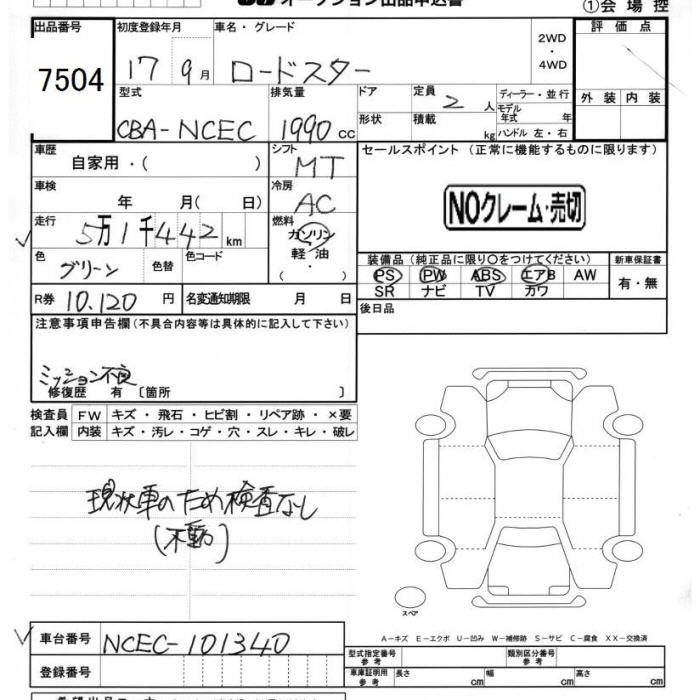 オークション出品申込書 ①会場控
出品番号 初度登録年月 車名・グレード 評価点
7504 17 9月 ロードスター 2WD・4WD
型式 排気量 ドア 定員 ディーラー・並行 外装 内装
CBA-NCEC 1990cc 2人 モデル年式 年
形状 積載 kg ハンドル 左・右
車歴 シフト セールスポイント (正常に機能するものに限ります)
自家用・( ) MT
車検 冷房 NOクレーム・売切
年 月( 日) AC
走行 燃料
5万1千442km ガソリン
色 色替 色コード 軽油 装備品(純正品に限り○をつけてください) 新車保証書
グリーン ・( ) PS PW ABS エアB AW 有・無
SR ナビ TV カワ
R券 10.120円 名変通知期限 月 日 後日品
注意事項申告欄(不具合内容等は具体的に記入して下さい)
ミッション不良
修復歴 有 〔箇所 〕
検査員 FW キズ・飛石・ヒビ割・リペア跡・×要
記入欄 内装 キズ・汚レ・コゲ・穴・スレ・キレ・破レ
現状車のため検査なし
(不動)
スペア
A-キズ E-エクボ U-凹み W-補修跡 S-サビ C-腐食 XX-交換済
車台番号 NCEC-101340 型式指定番号 参考 類別区分番号 参考
登録番号 車庫証明用 参考 長さ cm 幅 cm 高さ cm